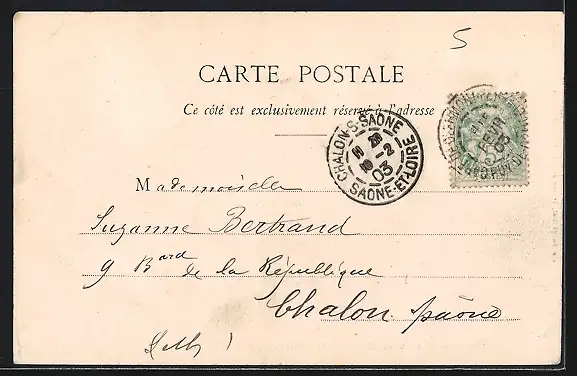 5
CARTE POSTALE
Ce côté est exclusivement réservé à l'adresse
CHALON-S-SAÔNE
-2
03
SAÔNE-ET-LOIRE
FEVR
03
Mademoiselle
Suzanne Bertrand
9 Bard de la République
Chalon s/saône